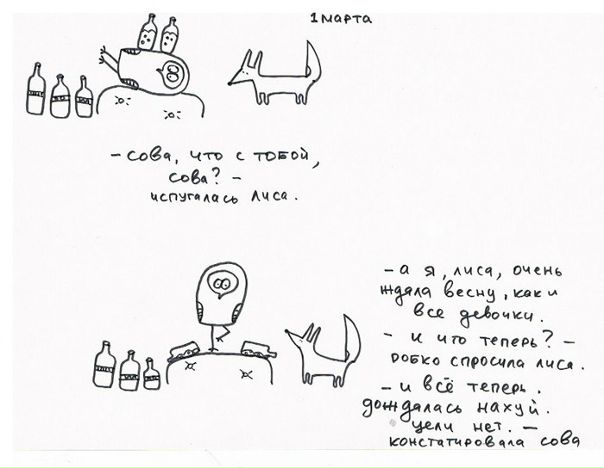 1 марта
- сова, что с тобой,
сова? -
испугалась лиса.
- а я, лиса, очень
ждала весну, как и
все девочки.
- и что теперь? -
робко спросила лиса.
- и всё теперь.
дождалась нахуй.
цели нет. -
констатировала сова